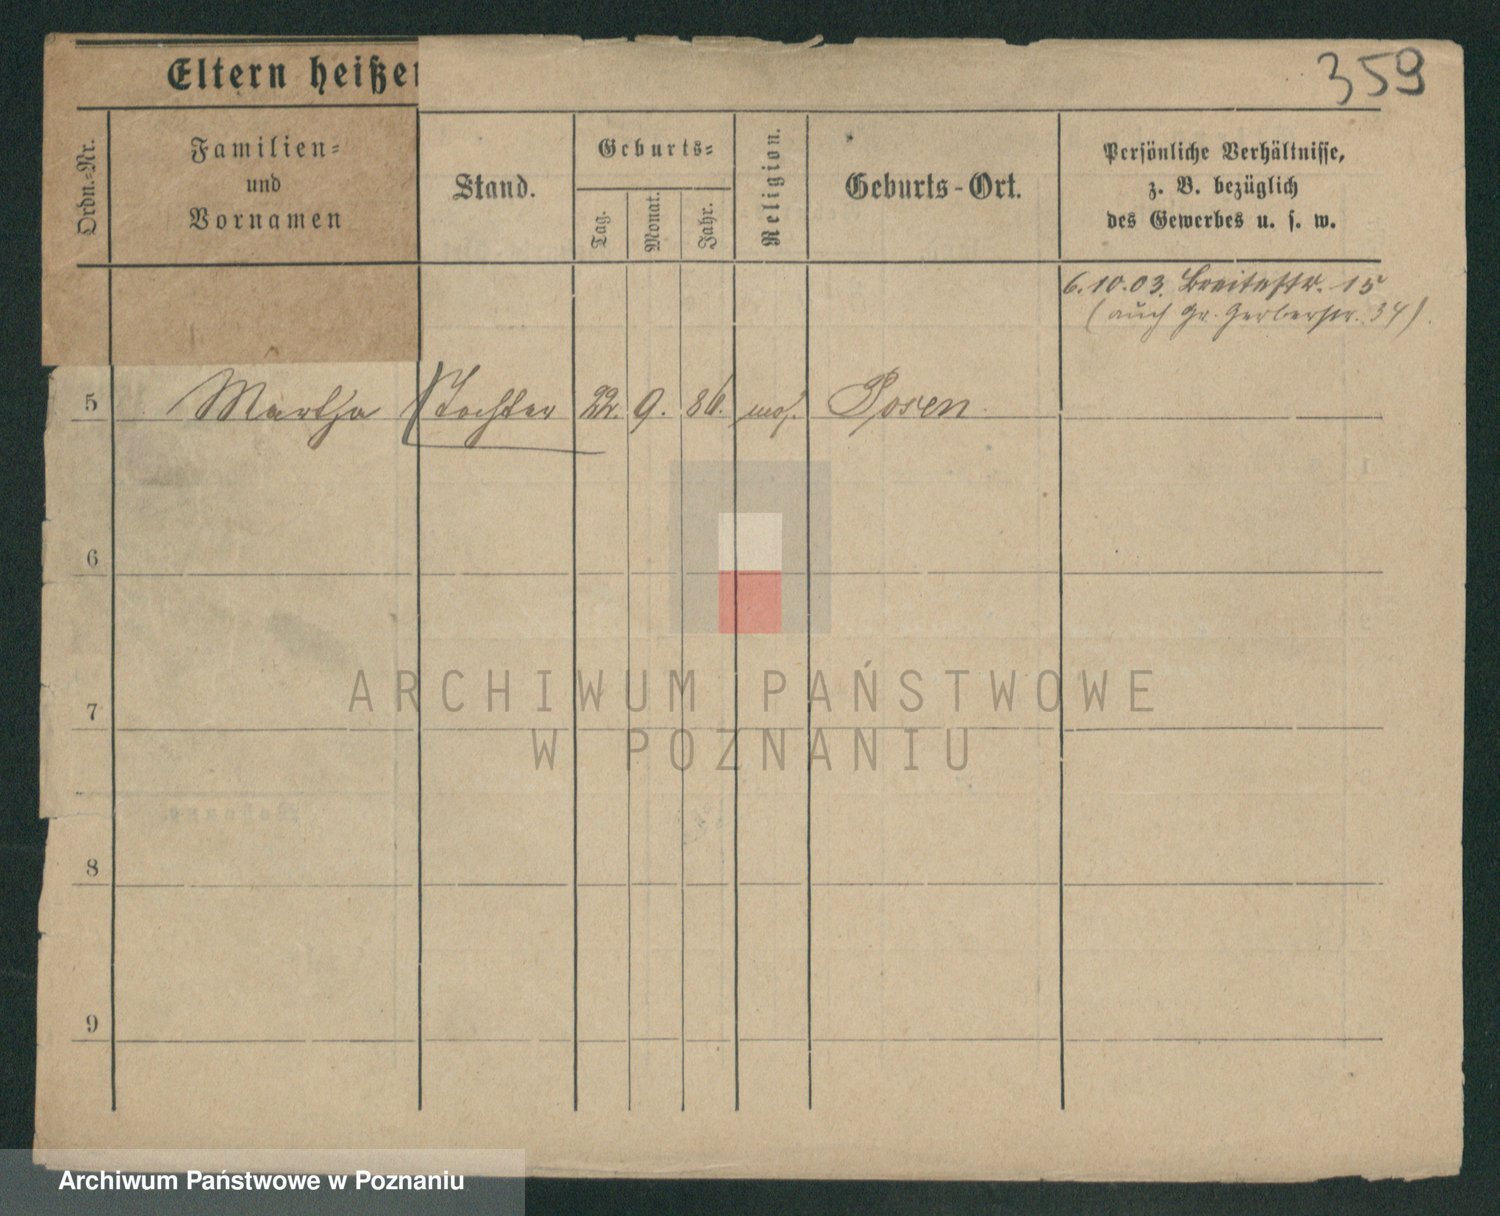 359
Eltern heißen
Ordn.=Nr.
Familien=
und
Vornamen
Stand.
Geburts=
Tag.
Monat.
Jahr.
Religion.
Geburts-Ort.
Persönliche Verhältnisse,
z. B. bezüglich
des Gewerbes u. s. w.
6.10.03. Breitestr. 15
(auch Gr. Gerberstr. 34).
5 Martha Tochter 22. 9. 86. mos. Posen
6
7
8
9
ARCHIWUM PAŃSTWOWE
W POZNANIU
Archiwum Państwowe w Poznaniu